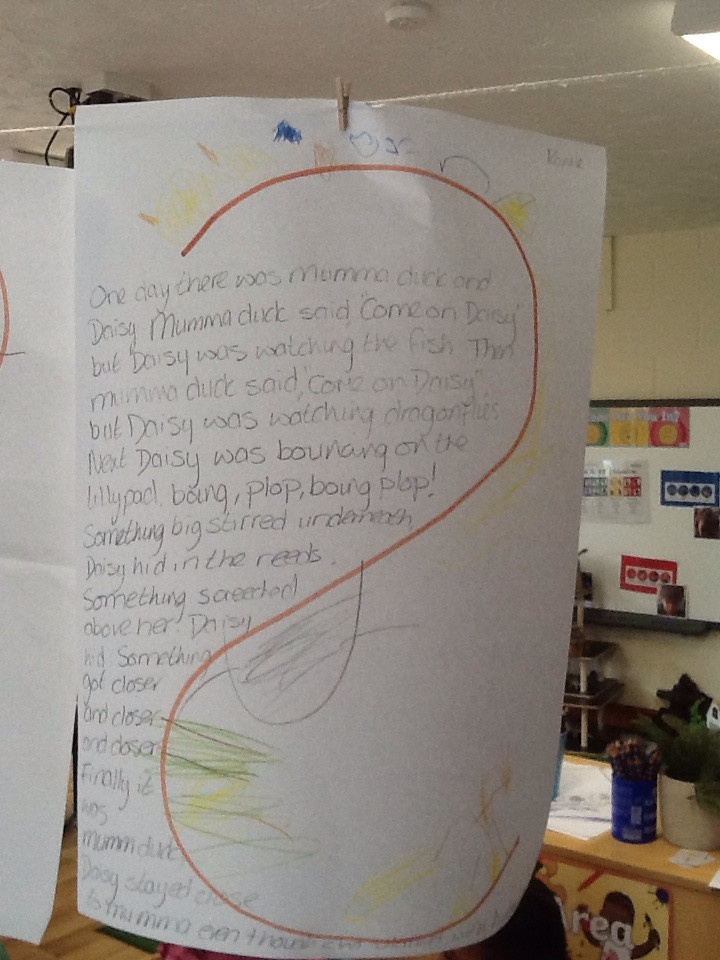 One day there was mumma duck and
Daisy Mumma duck said, "Come on Daisy"
but Daisy was watching the fish Then
mumma duck said, "Come on Daisy"
but Daisy was watching dragonflies
Next Daisy was bouncing on the
lillypad. boing, plop, boing plop!
Something big stirred underneath
Daisy hid in the reeds.
Something screeched
above her Daisy
hid Something
got closer
and closer
and closer
Finally it
was
mumm duck
Daisy stayed close
to mumma even though
Area